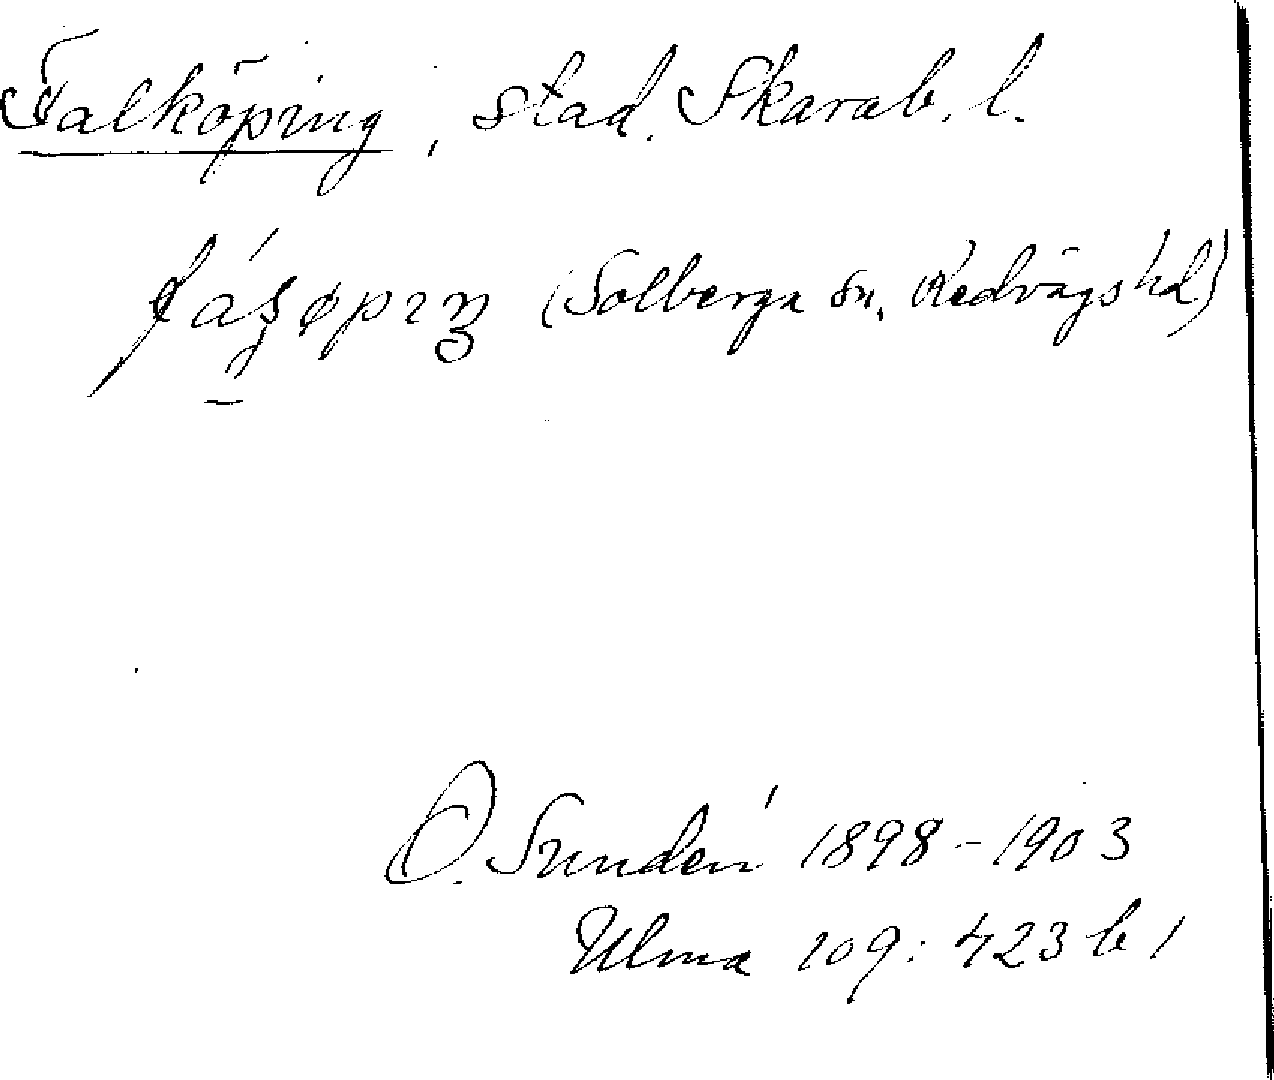 Falköping, stad. Skarab. l.
(Solberga sn, Redvägs hd)
O. Sundén 1898-1903
Ulma 109: 423 b 1